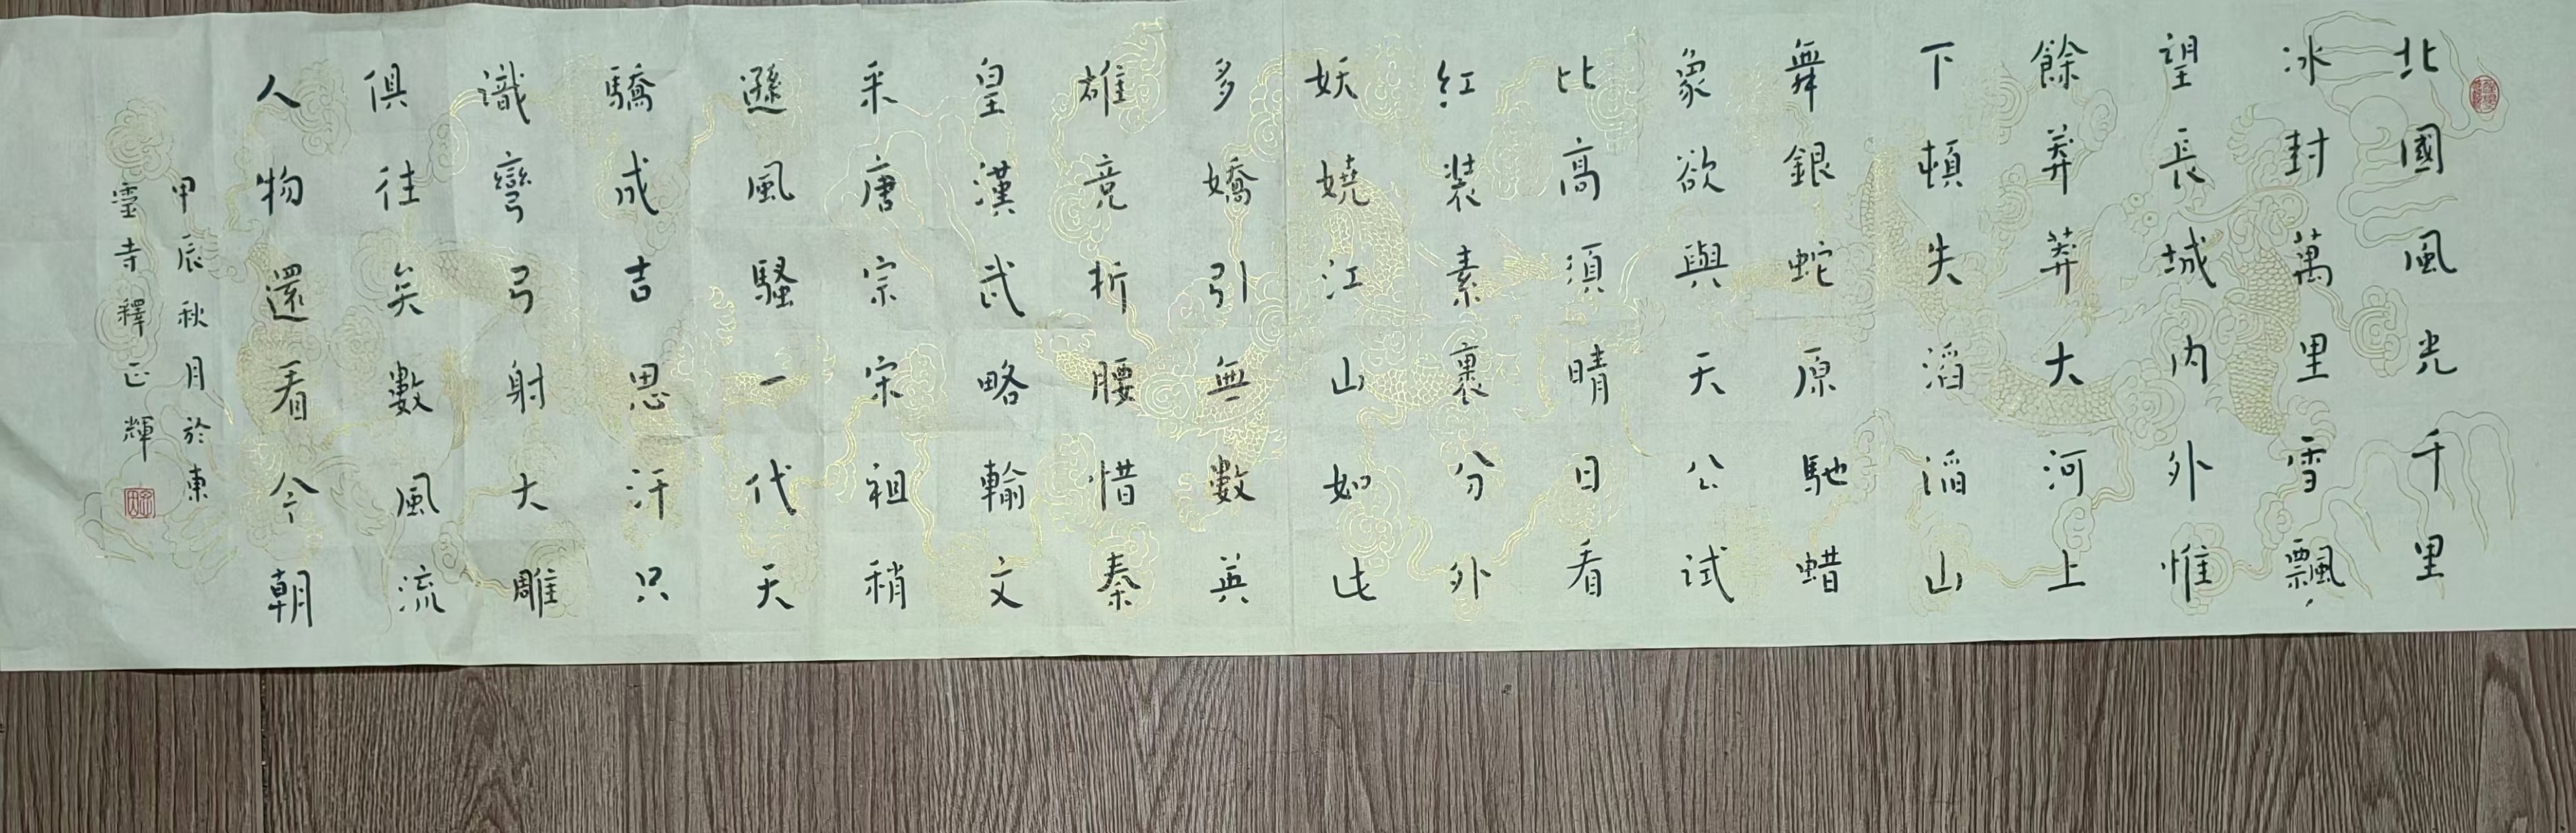 北國風光千里
冰封萬里雪飄
望長城内外惟
餘莽莽大河上
下頓失滔滔山
舞銀蛇原馳蜡
象欲與天公試
比高須晴日看
紅装素裹分外
妖嬈江山如此
多嬌引無數英
雄竞折腰惜秦
皇漢武略輸文
采唐宗宋祖稍
遜風騷一代天
驕成吉思汗只
識彎弓射大雕
俱往矣數風流
人物還看今朝
甲辰秋月於東
霊寺釋正輝